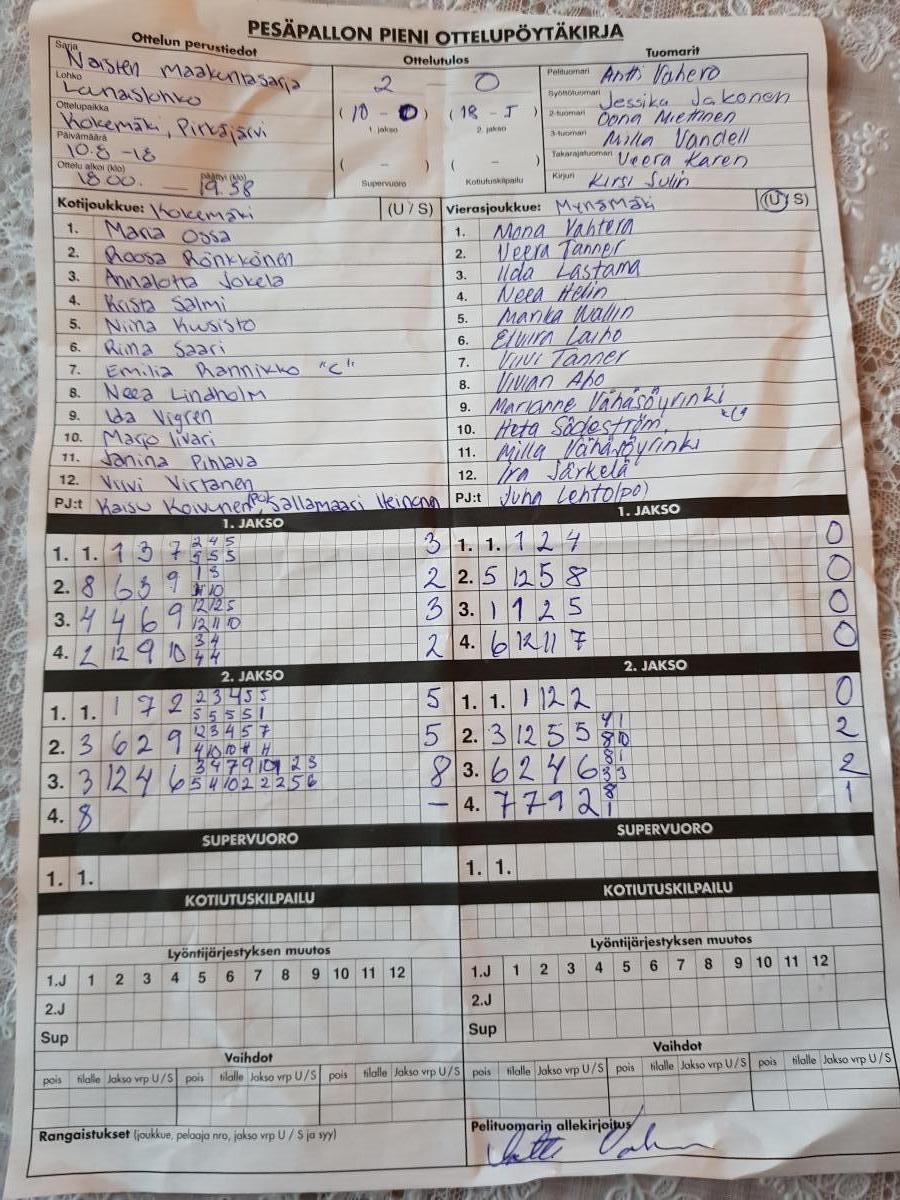 PESÄPALLON PIENI OTTELUPÖYTÄKIRJA
Ottelun perustiedot
Sarja Naisten maakuntasarja
Lohko Lounaslohko
Ottelupaikka Kokemäki, Pitkäjärvi
Päivämäärä 10.8 -18
Ottelu alkoi (klo) 18.00. — päättyi (klo) 19.38
Ottelutulos
2 0
(10 - 0) (18 - 5)
1. jakso 2. jakso
( - ) ( - )
Supervuoro Kotiutuskilpailu
Tuomarit
Pelituomari Antti Vahero
Syöttötuomari Jessika Jakonen
2-tuomari Oona Miettinen
3-tuomari Milla Vandell
Takarajatuomari Veera Karen
Kirjuri Kirsi Sulin
Kotijoukkue: Kokemäki (U / S)
1. Maria Ossa
2. Roosa Rönkkönen
3. Annalotta Jokela
4. Krista Salmi
5. Niina Kuusisto
6. Riina Saari
7. Emilia Rannikko "C"
8. Neea Lindholm
9. Ida Vigren
10. Marjo Iivari
11. Janina Pihlava
12. Viivi Virtanen
PJ:t Kaisu Koivunen Sallamaari Heinonen
Vierasjoukkue: Mynämäki (U / S)
1. Mona Vahtera
2. Veera Tanner
3. Iida Lastama
4. Neea Helin
5. Marika Wallin
6. Elviira Laiho
7. Viivi Tanner
8. Vivian Aho
9. Marianne Vähäsöyrinki
10. Heta Södeström
11. Milla Vähäsöyrinki
12. Ira Särkelä
PJ:t Juha Lehto(po)
1. JAKSO
1. 1. 1 3 7 2 4 5 3
5 5 5
2. 8 6 3 9 1 3 2
10
3. 4 4 6 9 12 12 5 3
12 11 10
4. 2 12 9 10 3 4 2
4 4
1. JAKSO
1. 1. 1 2 4 0
2. 5 12 5 8 0
3. 1 1 2 5 0
4. 6 12 11 7 0
2. JAKSO
1. 1. 1 7 2 2 3 4 5 5 5
5 5 5 5 1
2. 3 6 2 9 12 3 4 5 7 5
4 10 10
3. 3 12 4 6 3 4 7 9 10 2 3 8
5 4 10 2 2 2 5 6
4. 8 —
2. JAKSO
1. 1. 1 12 2 0
2. 3 12 5 5 4 1 2
8 10
3. 6 2 4 6 8 1 2
3 3
4. 7 7 9 2 8 1
1
SUPERVUORO
1. 1.
SUPERVUORO
1. 1.
KOTIUTUSKILPAILU
KOTIUTUSKILPAILU
Lyöntijärjestyksen muutos
1.J 1 2 3 4 5 6 7 8 9 10 11 12
2.J
Sup
Lyöntijärjestyksen muutos
1.J 1 2 3 4 5 6 7 8 9 10 11 12
2.J
Sup
Vaihdot
pois tilalle Jakso vrp U / S pois tilalle Jakso vrp U / S pois tilalle Jakso vrp U / S
Vaihdot
pois tilalle Jakso vrp U / S pois tilalle Jakso vrp U / S pois tilalle Jakso vrp U / S
Rangaistukset (joukkue, pelaaja nro, jakso vrp U / S ja syy)
Pelituomarin allekirjoitus